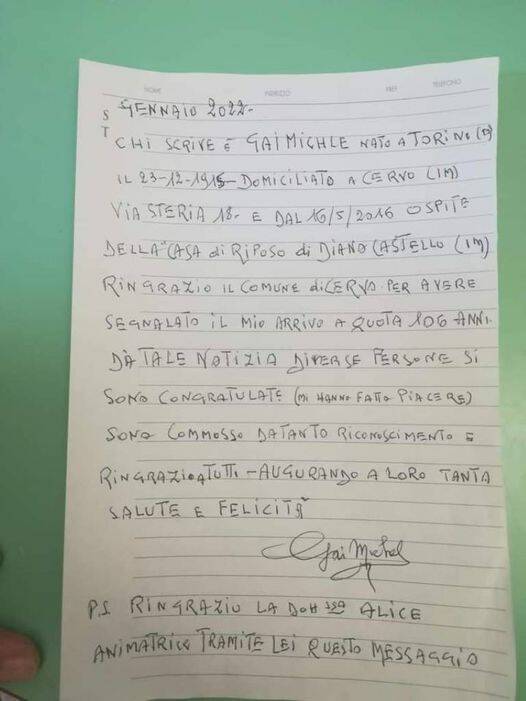 NOME INDIRIZZO PREF. TELEFONO
S
T
GENNAIO 2022-
CHI SCRIVE È GAI MICHLE NATO A TORINO
IL 23-12-1915- DOMICILIATO A CERVO (IM)
VIA STERIA 18- E DAL 16/5/2016 OSPITE
DELLA "CASA di RIPOSO di DIANO CASTELLO (IM)
RINGRAZIO IL COMUNE di CERVO PER AVERE
SEGNALATO il MIO ARRIVO A QUOTA 106 ANNI.
DA TALE NOTIZIA DIVERSE PERSONE SI
SONO CONGRATULATE (MI HANNO FATTO PIACERE)
SONO COMMOSSO DA TANTO RICONOSCIMENTO E
RINGRAZIO A TUTTI - AUGURANDO A LORO TANTA
SALUTE E FELICITÀ
Gai Michel
P.S RINGRAZIO LA DOTT ssa ALICE
ANIMATRICE TRAMITE LEI QUESTO MESSAGGIO